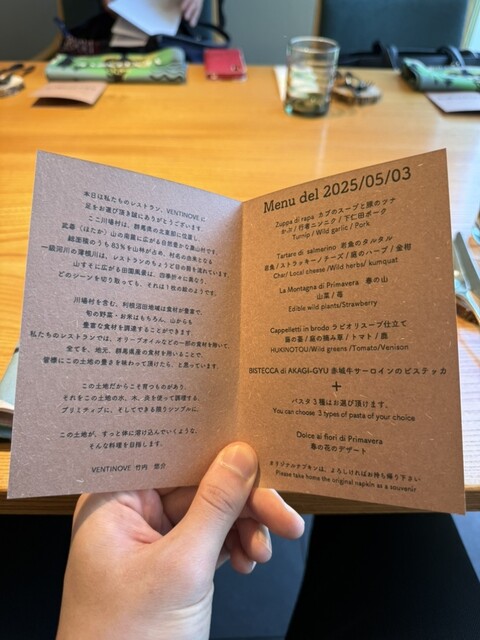 本日は私たちのレストラン、VENTINOVE に
足をお運び頂き誠にありがとうございます
ここ川場村は、群馬県の北東部に位置し
武尊（ほたか）山の南麓に広がる自然豊かな農山村です。
総面積のうち83％を山林が占め、村名の由来となる
一級河川の薄根川は、レストランのちょうど目の前を流れています。
山すそに広がる田園風景は、四季折々に異なり、
どのシーンを切り取っても、それは1枚の絵のようです。
川場村を含む、利根沼田地域は食材が豊富で、
旬の野菜・お米はもちろん、山からも
豊富な食材を調達することができます。
私たちのレストランでは、オリーブオイルなどの一部の食材を除いて、
全てを、地元、群馬県産の食材を用いることで、
皆様にこの土地の豊さを味わって頂けたら、と思っています。
この土地だからこそ育つものがあり、
それをこの土地の水、木、炎を使って調理する。
プリミティブに、そしてできる限りシンプルに。
この土地が、すっと体に溶け込んでいくような、
そんな料理を目指します。
VENTINOVE 竹内 悠介
Menu del 2025/05/03
Zuppa di rapa カブのスープと豚のツナ
かぶ / 行者ニンニク / 下仁田ポーク
Turnip / Wild garlic / Pork
Tartare di salmerino 岩魚のタルタル
岩魚 / ストラッキーノチーズ / 庭のハーブ / 金柑
Char/ Local cheese /Wild herbs/ kumquat
La Montagna di Primavera 春の山
山菜 / 苺
Edible wild plants/Strawberry
Cappelletti in brodo ラビオリスープ仕立て
蕗の薹 / 庭の摘み草 / トマト / 鹿
HUKINOTOU/Wild greens /Tomato/Venison
BISTECCA di AKAGI-GYU 赤城牛サーロインのビステッカ
+
パスタ3種はお選び頂けます。
You can choose 3 types of pasta of your choice
Dolce ai fiori di Primavera
春の花のデザート
オリジナルナプキンは、よろしければお持ち帰り下さい
Please take home the original napkin as a souvenir